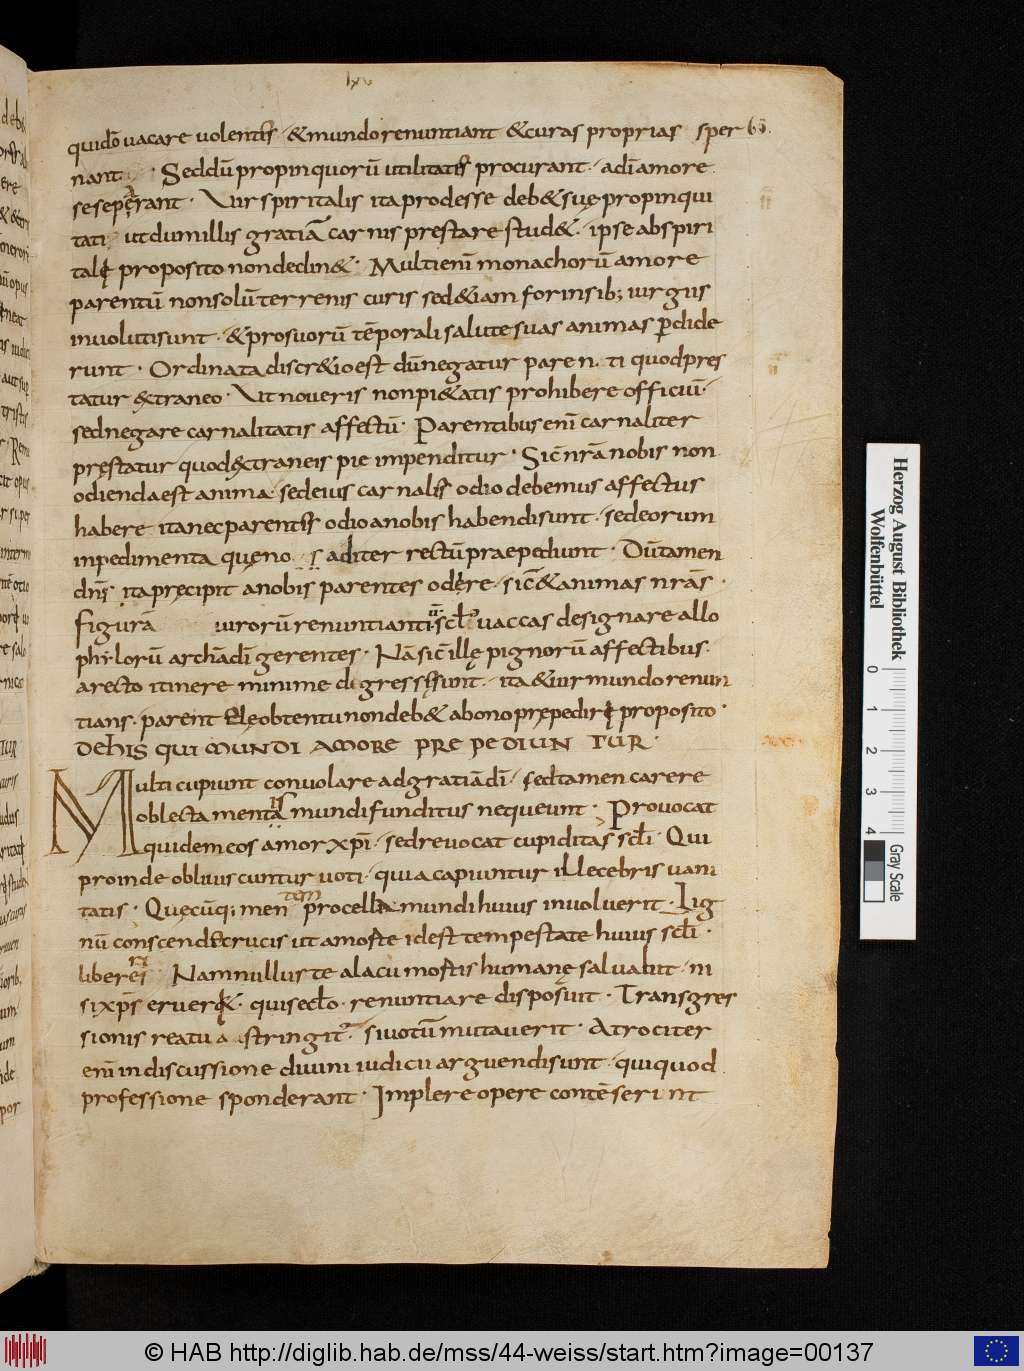 lxv
quidō vacare volentis · & mundo renuntiant & curas proprias sper 65.
nant · Sed dū propinquorū utilitatis procurant · a dī amore
se seperant · Vir spiritalis ita prodesse deb& suę propinqui
tati ut dum illis gratiā carnis prestare stud& · ipse ab spiri
tali proposito non declin& · Multi enī monachorū amore
parentū non solū terrenis curis sed & iam forinsib; iurgiis
involuti sunt · & pro suorū tēporali salute suas animas ꝑdide
runt · Ordinata discr&io est dū negatur paren ti quod pres
tatur extraneo · Ut noveris non pi&atis prohibere officiū ·
sed negare carnalitatis affectū · Parentibus enī carnaliter
pręstatur quod extraneis pie impenditur · Sic̄ nrā nobis non
odienda est anima · sed eius carnalis odio debemus affectus
habere ita nec parentes odio a nobis habendi sunt · sed eorum
inpedimenta quę nos ad iter rectū praepediunt · Dū tamen
dn̄s ita pręcipit a nobis parentes odere · sic̄ & animas nrās ·
figurā virorū renuntiantiū scl̄o vaccas designare allo
phylorū archā dī gerentes · Nā sic̄ illę pignorū affectibus ·
a recto itinere minime digressę sunt · ita & vir mundo renun
tians · parentelę obtentu non deb& a bono prępediri proposito ·
DE HIS QUI MUNDI AMORE PREPEDIUNTUR ·
Multi cupiunt convolare ad gratiā dī · sed tamen carere
oblectamentis mundi funditus nequeunt · Provocat
quidem eos amor xpī · sed revocat cupiditas scl̄i · Qui
proinde obliviscuntur voti · quia capiuntur illecebris vani
tatis · Quęcūq; mentem procella mundi huius involverit · Lig
nū conscendat crucis ut a mo&e id est tempestate huius scl̄i ·
liberari Nam nullus te a lacu mortis humanę salvabit · ni
si xp̄s eruer& · qui seclo · renuntiare disposuit · Transgres
sionis reatu astringitr̄ · si votū mutaverit · Atrociter
enī in discussione divini iudicii arguendi sunt · qui quod
professione sponderant · Implere opere contēserint
Herzog August Bibliothek
Wolfenbüttel
0 1 2 3 4
Gray Scale
© HAB http://diglib.hab.de/mss/44-weiss/start.htm?image=00137